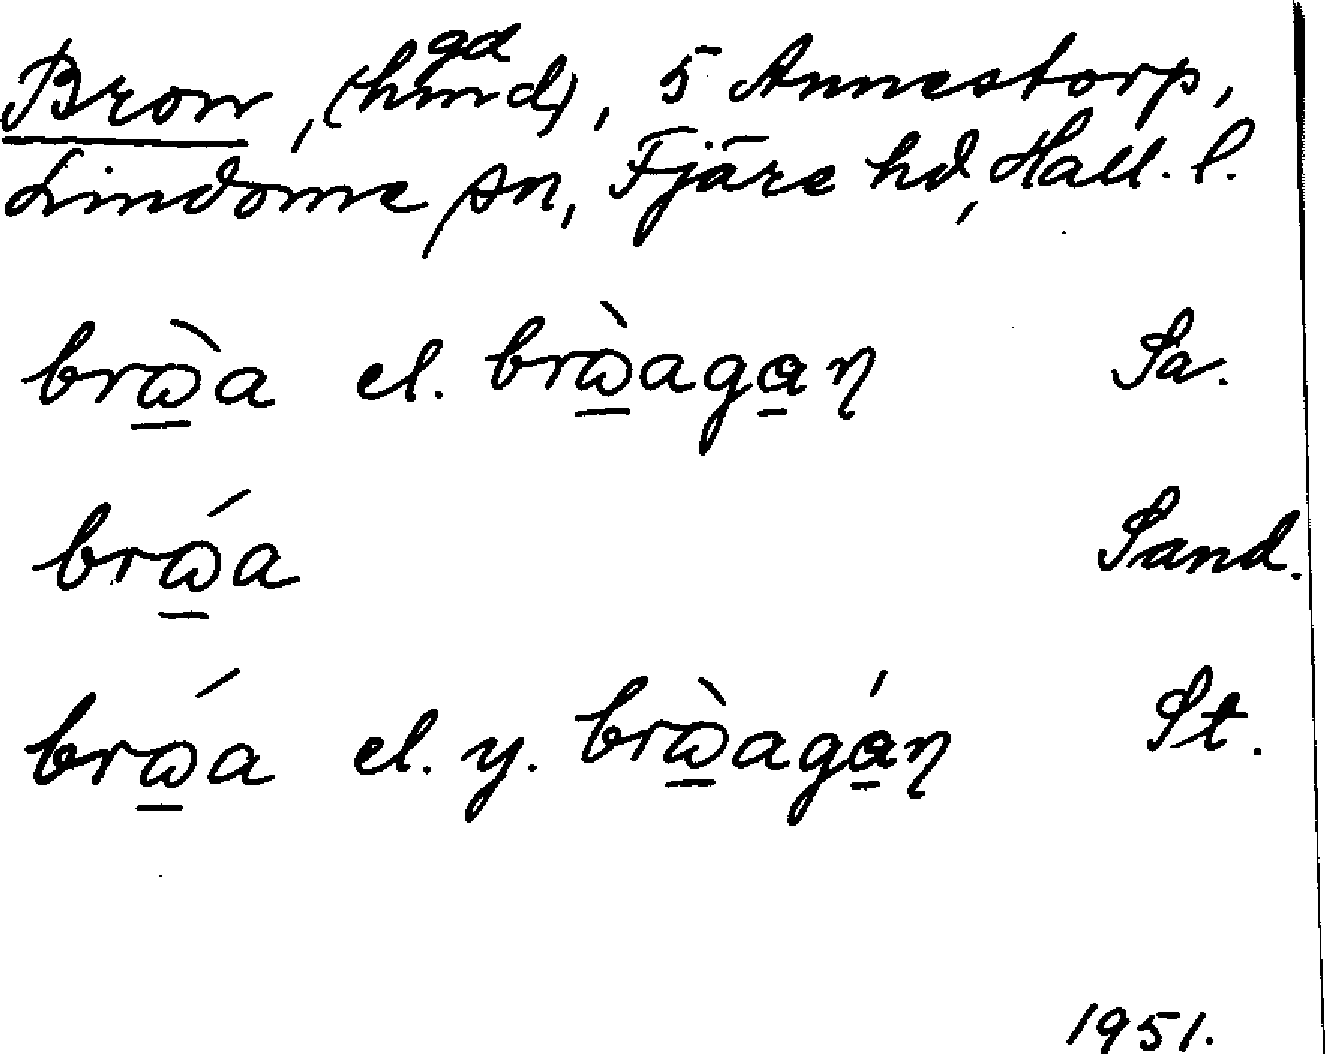 Bron, (hmd), gd 5 Annestorp,
Lindome sn, Fjäre hd, Hall. l.
brὼ̠a el. brὼ̠aga̠ŋ Sa.
brώ̠a Sand.
brώ̠a el. y. brὼ̠agá̠ŋ St.
1951.